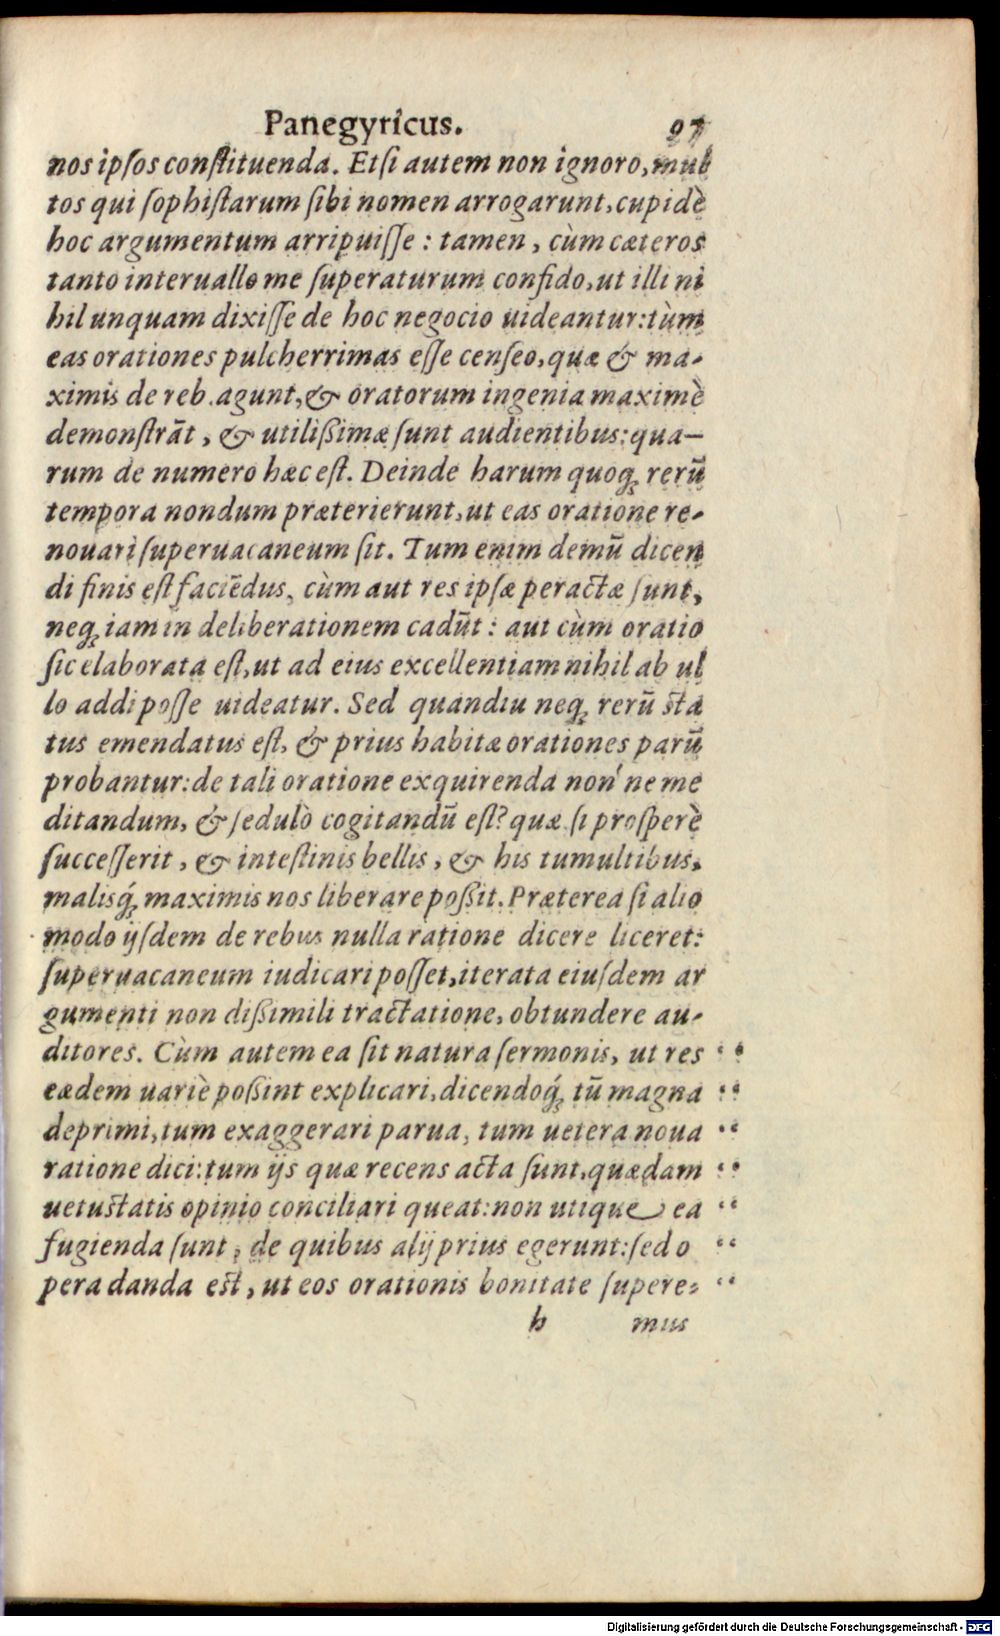 Panegyricus. 97
nos ipſos conſtituenda. Etſi autem non ignoro, mul
tos qui ſophiſtarum ſibi nomen arrogarunt, cupidè
hoc argumentum arripuiſſe : tamen, cùm cæteros
tanto interuallo me ſuperaturum confido, ut illi ni
hil unquam dixiſſe de hoc negocio uideantur: tùm
eas orationes pulcherrimas eſſe cenſeo, quæ & ma-
ximis de reb. agunt, & oratorum ingenia maximè
demonſtrāt, & utilißimæ ſunt audientibus: qua-
rum de numero hæc eſt. Deinde harum quoq; rerū
tempora nondum præterierunt, ut eas oratione re-
nouari ſuperuacaneum ſit. Tum enim demū dicen
di finis eſt faciēdus, cùm aut res ipſæ peractæ ſunt,
neq; iam in deliberationem cadūt: aut cùm oratio
ſic elaborata eſt, ut ad eius excellentiam nihil ab ul
lo addi poſſe uideatur. Sed quandiu neq; rerū ſta
tus emendatus eſt, & prius habitæ orationes parū
probantur: de tali oratione exquirenda non' ne me
ditandum, & ſedulò cogitandū eſt? quæ ſi proſperè
ſucceſſerit, & inteſtinis bellis, & his tumultibus,
malisq́; maximis nos liberare poßit. Præterea ſi alio
modo ijſdem de rebus nulla ratione dicere liceret:
ſuperuacaneum iudicari poſſet, iterata eiuſdem ar
gumenti non dißimili tractatione, obtundere au-
ditores. Cùm autem ea ſit natura ſermonis, ut res "
eædem uariè poßint explicari, dicendoq́; tū magna "
deprimi, tum exaggerari parua, tum uetera noua "
ratione dici: tum ijs quæ recens acta ſunt, quædam "
uetuſtatis opinio conciliari queat: non utique ea "
fugienda ſunt, de quibus alij prius egerunt: ſed o "
pera danda eſt, ut eos orationis bonitate ſupere- "
h mus
Digitalisierung gefördert durch die Deutsche Forschungsgemeinschaft - DFG